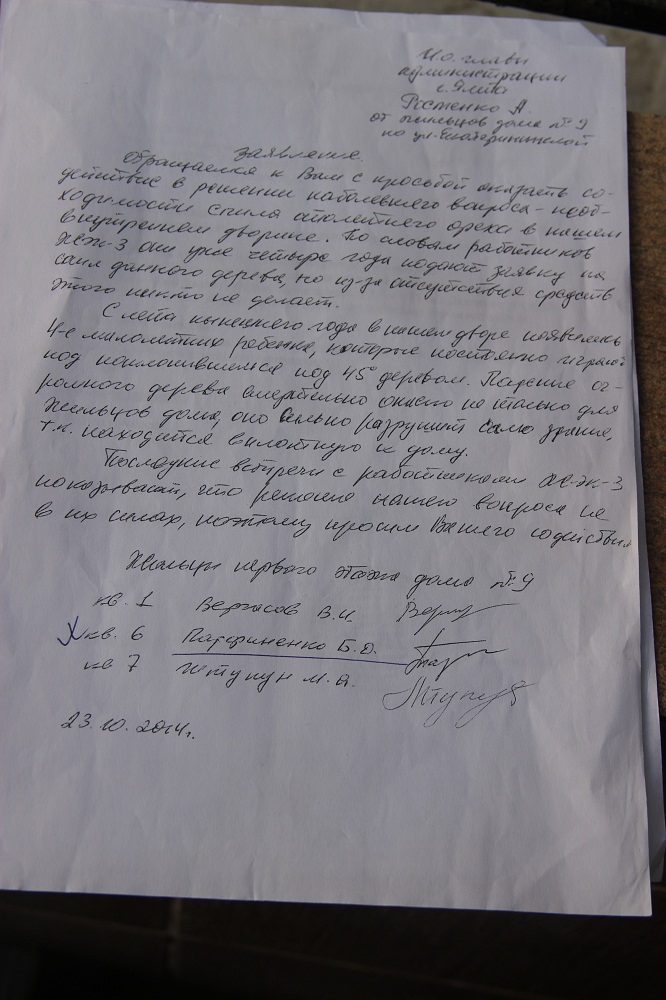 И.о. главы
администрации
г. Ялта
Ростенко А.
от жильцов дома № 9
по ул. Екатерининской
Заявление.
Обращаемся к Вам с просьбой оказать со-
действие в решении наболевшего вопроса - необ-
ходимости спила столетнего ореха в нашем
внутреннем дворике. По словам работников
ЖЭК-3 они уже четыре года подают заявку на
спил данного дерева, но из-за отсутствия средств
этого никто не делает.
С лета нынешнего года в нашем дворе появились
4-е малолетних ребенка, которые постоянно играют
под наклонившемся под 45° деревом. Падение ог-
ромного дерева смертельно опасно не только для
жильцов дома, оно сильно разрушит само здание,
т.к. находится вплотную к дому.
Последние встречи с работниками ЖЭК-3
показывают, что решение нашего вопроса не
в их силах, поэтому просим Вашего содействия
Жильцы первого этажа дома № 9
кв. 1 Вергасов В.И.
кв. 6 Парфиненко Б.О.
кв 7 М.А.
23.10.2014г.